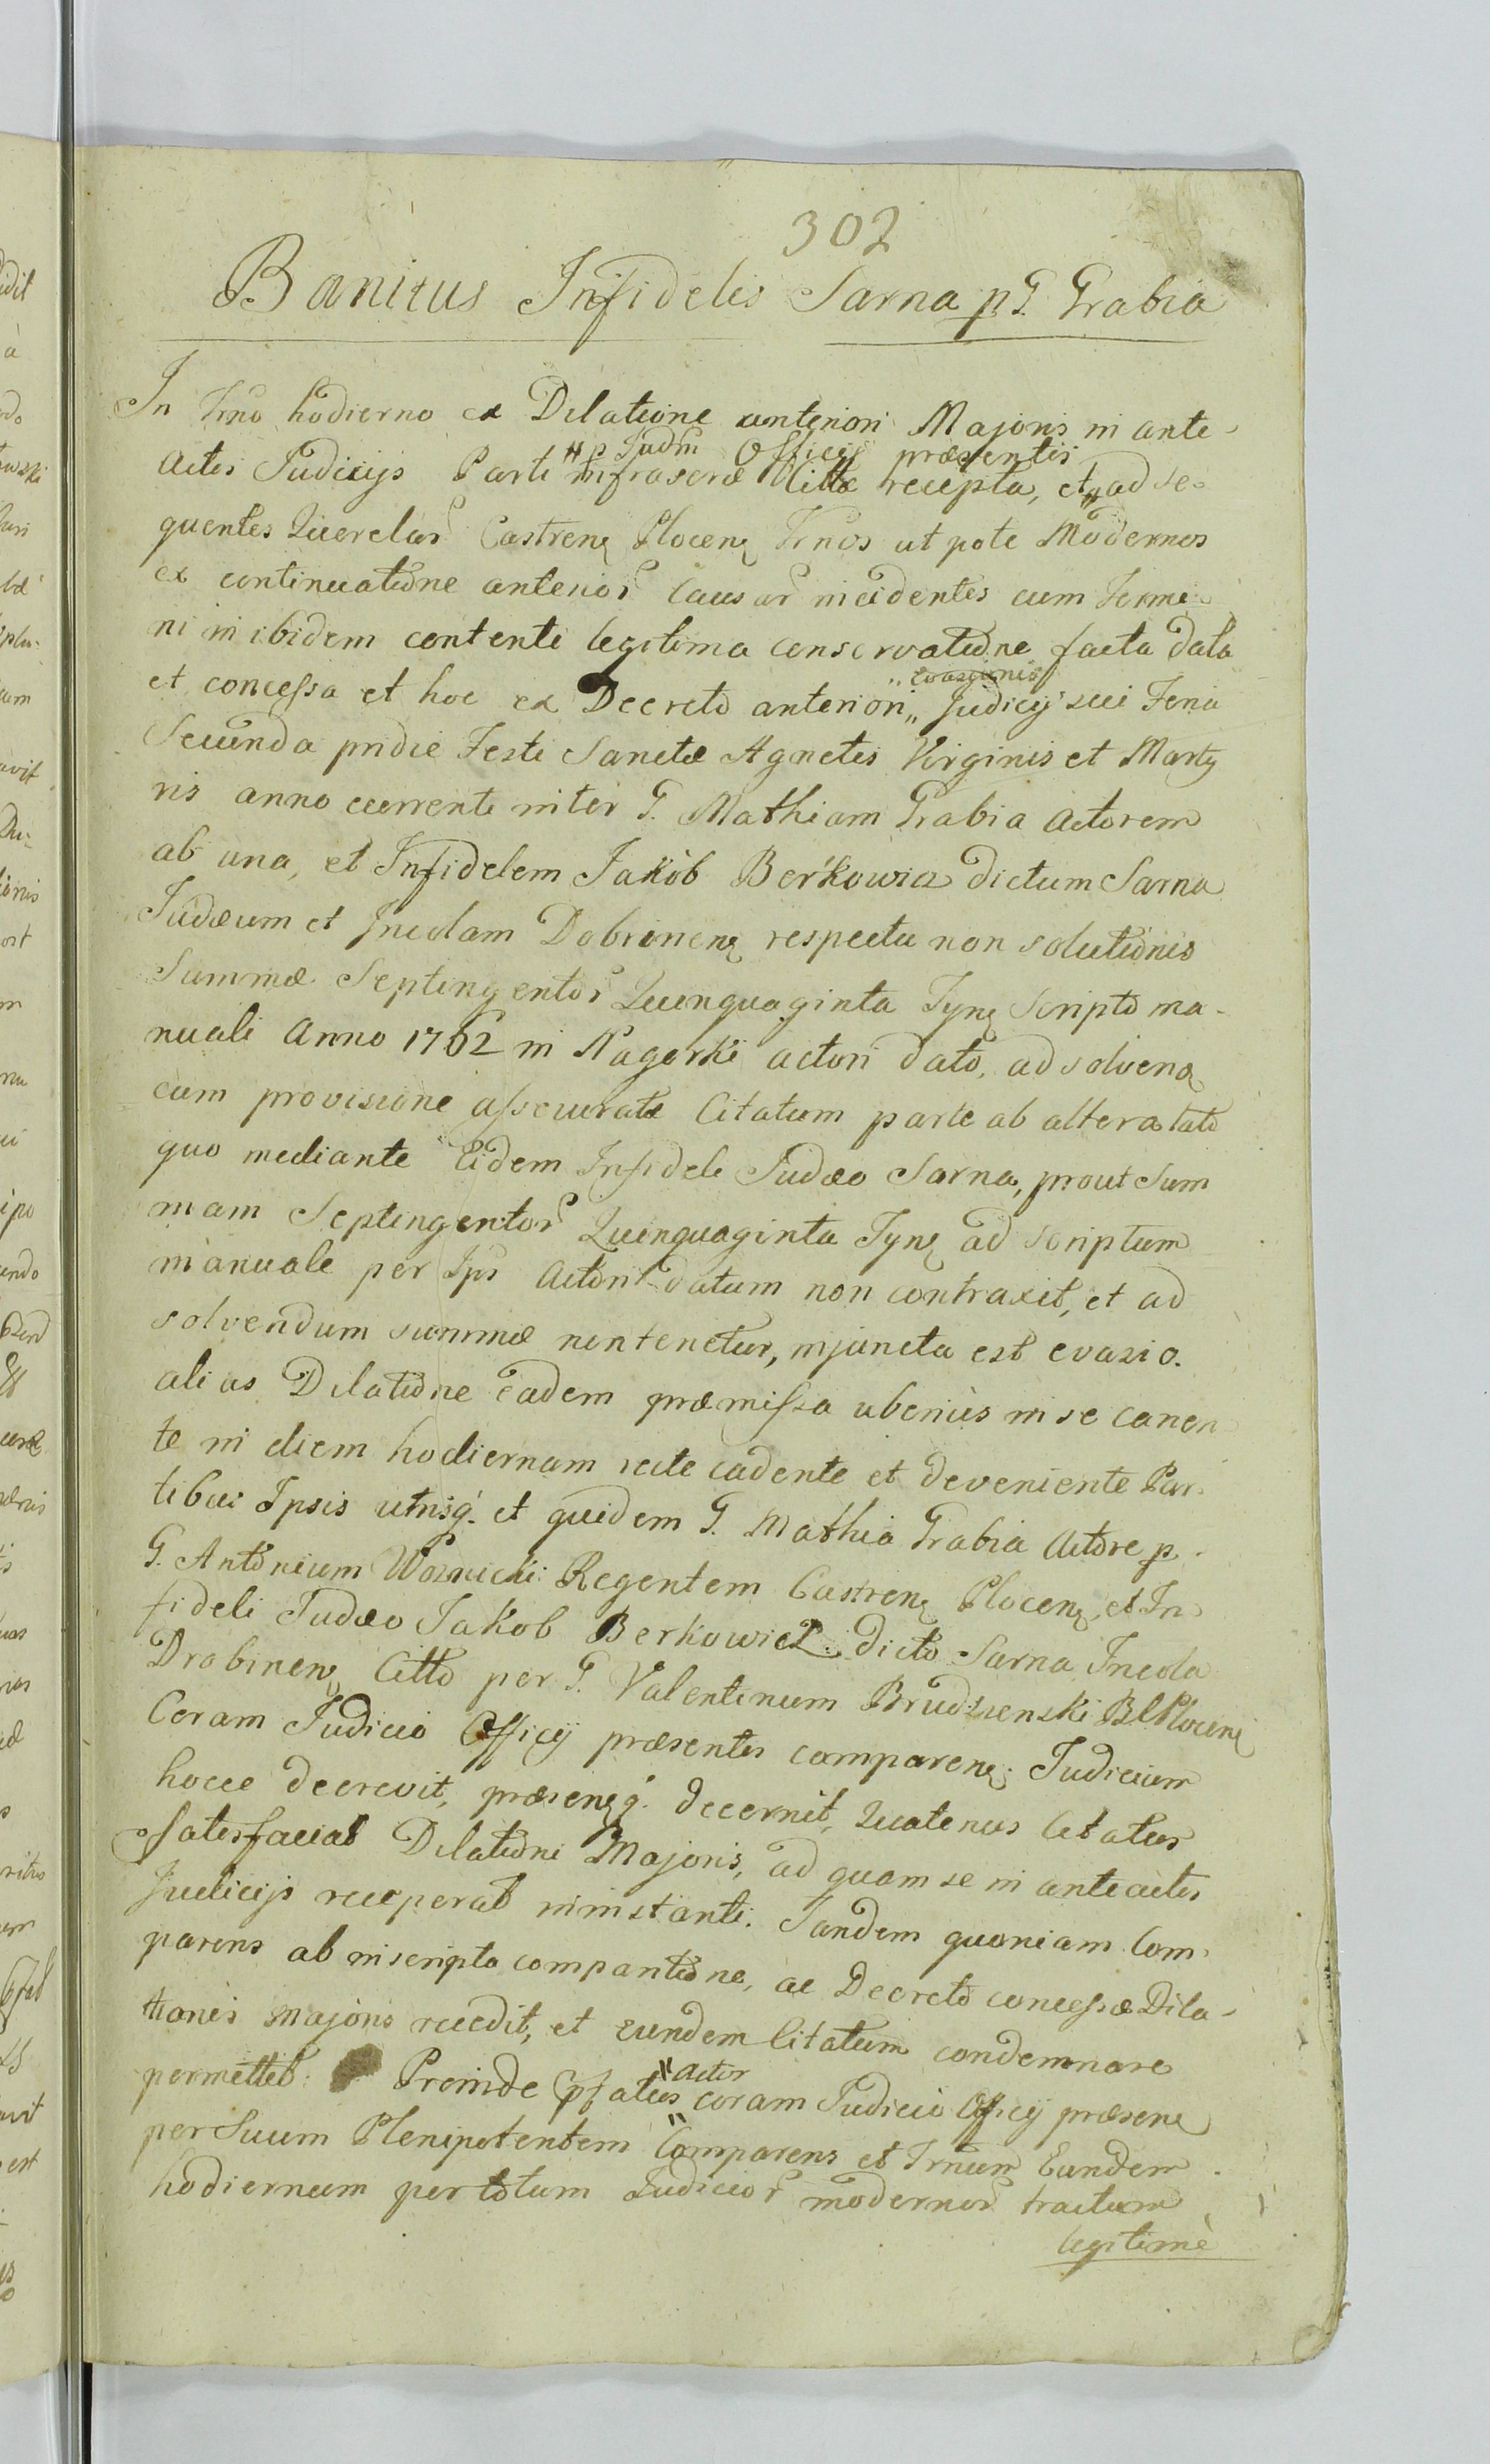 302
Banitus Infidelis Sarna p G. Grabia
In Trno hodierno ex Dilatione anteriori Majoris in ante-
" p Judm Officij præsentis
Actis Judicijs Parti infrascræ Cittæ recepta, et " ad se-
quentes Querelar Castren Plocen Trnos ut pote Modernos
ex continuatione anterior Causar incidentes cum Termi-
ni in ibidem contenti legitima conservatione facta data
" evasionis
et concessa et hoc ex Decreto anteriori " Judicij sui Feria
Secunda pridie Festi Sanctæ Agnetis Virginis et Marty
ris anno currenti inter G. Mathiam Grabia Actorem
ab una, et Infidelem Jakób Berkowicz dictum Sarna
Judæum et Incolam Dobrinen respectu non solutionis
Summæ Septingentor Quinquaginta Tyn Scripto ma-
nuali Anno 1762 in Nagorki actori dato, ad solven
cum provisione assecuratæ Citatum parte ab altera lato
quo mediante Eidem Infideli Judæo Sarna, prout Sum
mam Septingentor Quinquaginta Tyn ad scriptum
manuale per Ips Actori datum non contraxit, et ad
solvendum summæ non tenetur, injuncta est evasio.
alias Dilatione eadem præmissa uberius in se canen
te in diem hodiernam recte cadente et deveniente Par-
tibus Ipsis utrisq. et quidem G. Mathia Grabia Actore p.
G. Antonium Woznicki Regentem Castren Plocen, et In-
fideli Judæo Jakob Berkowicz dicto Sarna Incola
Drobinen Citto per G. Valentinum Brudzienski BLPlocen
Coram Judicio Officij præsentis comparen. Judicium
hocce decrevit, præsenq. decernit, Quatenus Citatus
satisfaciat Dilationi Majoris, ad quam se in anteactis
Judicijs receperat in instanti. Tandem quoniam Com-
parens ab inscripta comparitione, ac Decreto concessæ Dila-
tionis Majoris recedit, et eundem Citatum condemnare
permittet: Proinde Pfatus " Actor coram Judicio Officij præsen
per Suum Plenipotentem " Comparens et Trnum Eundem
hodiernum per totum Judicior modernor tractum
legitimè